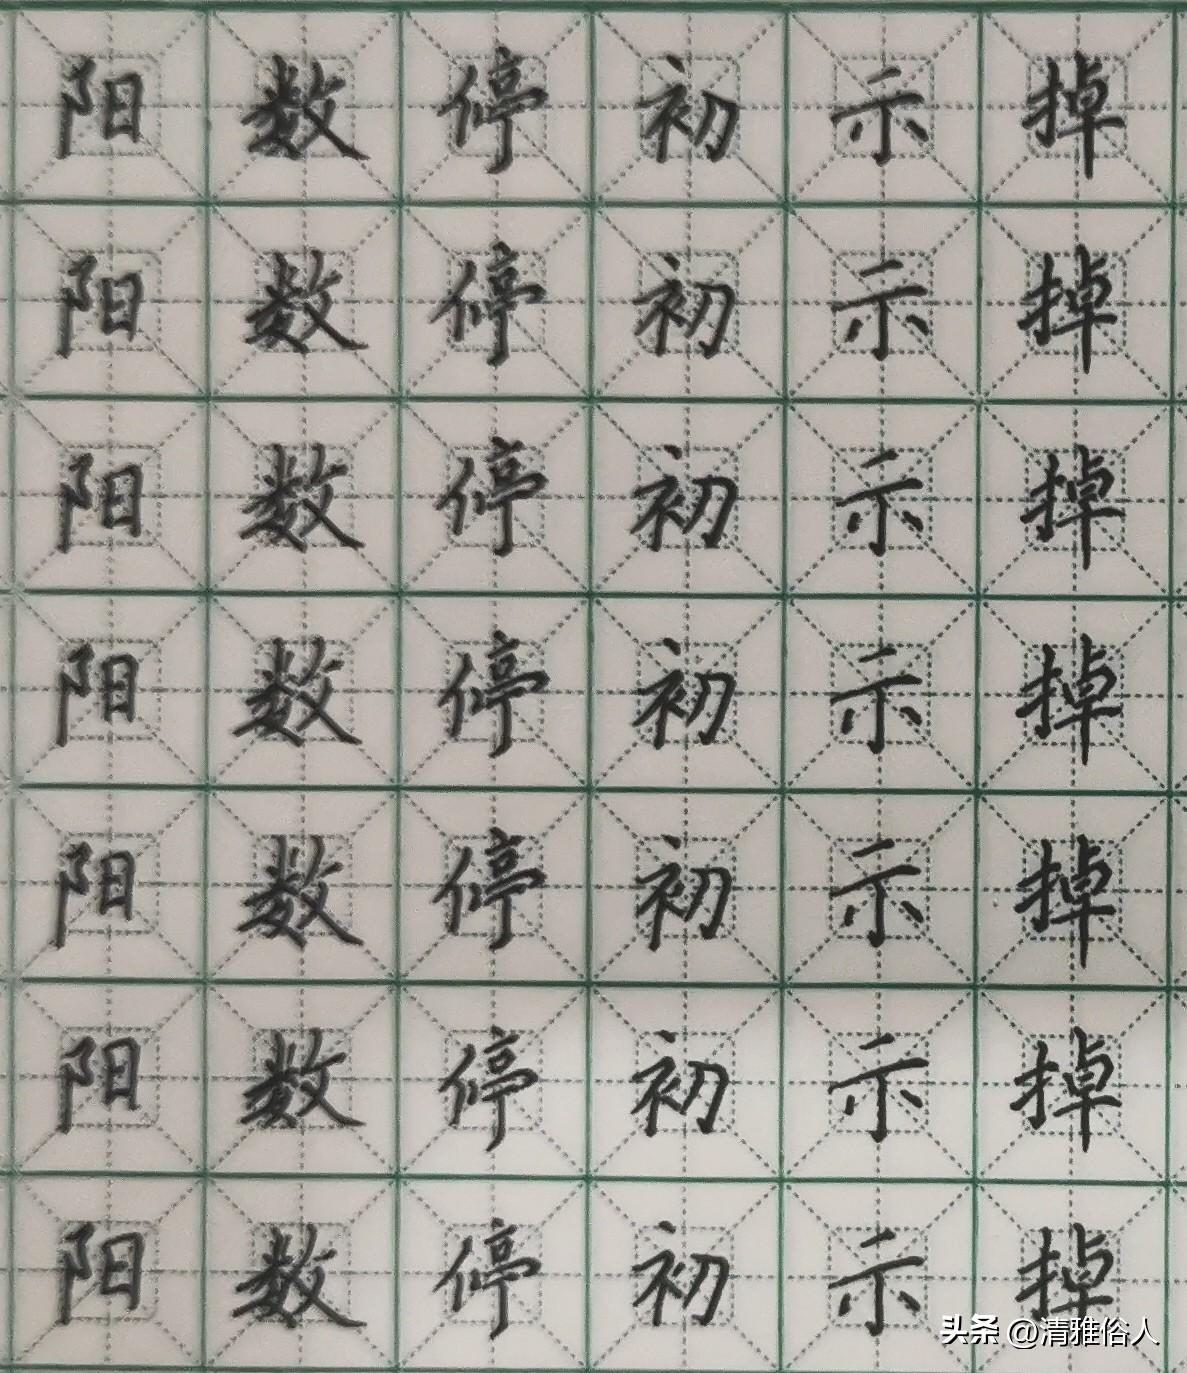 阳数停初示掉
阳数停初示掉
阳数停初示掉
阳数停初示掉
阳数停初示掉
阳数停初示掉
阳数停初示掉
头条 @清雅俗人